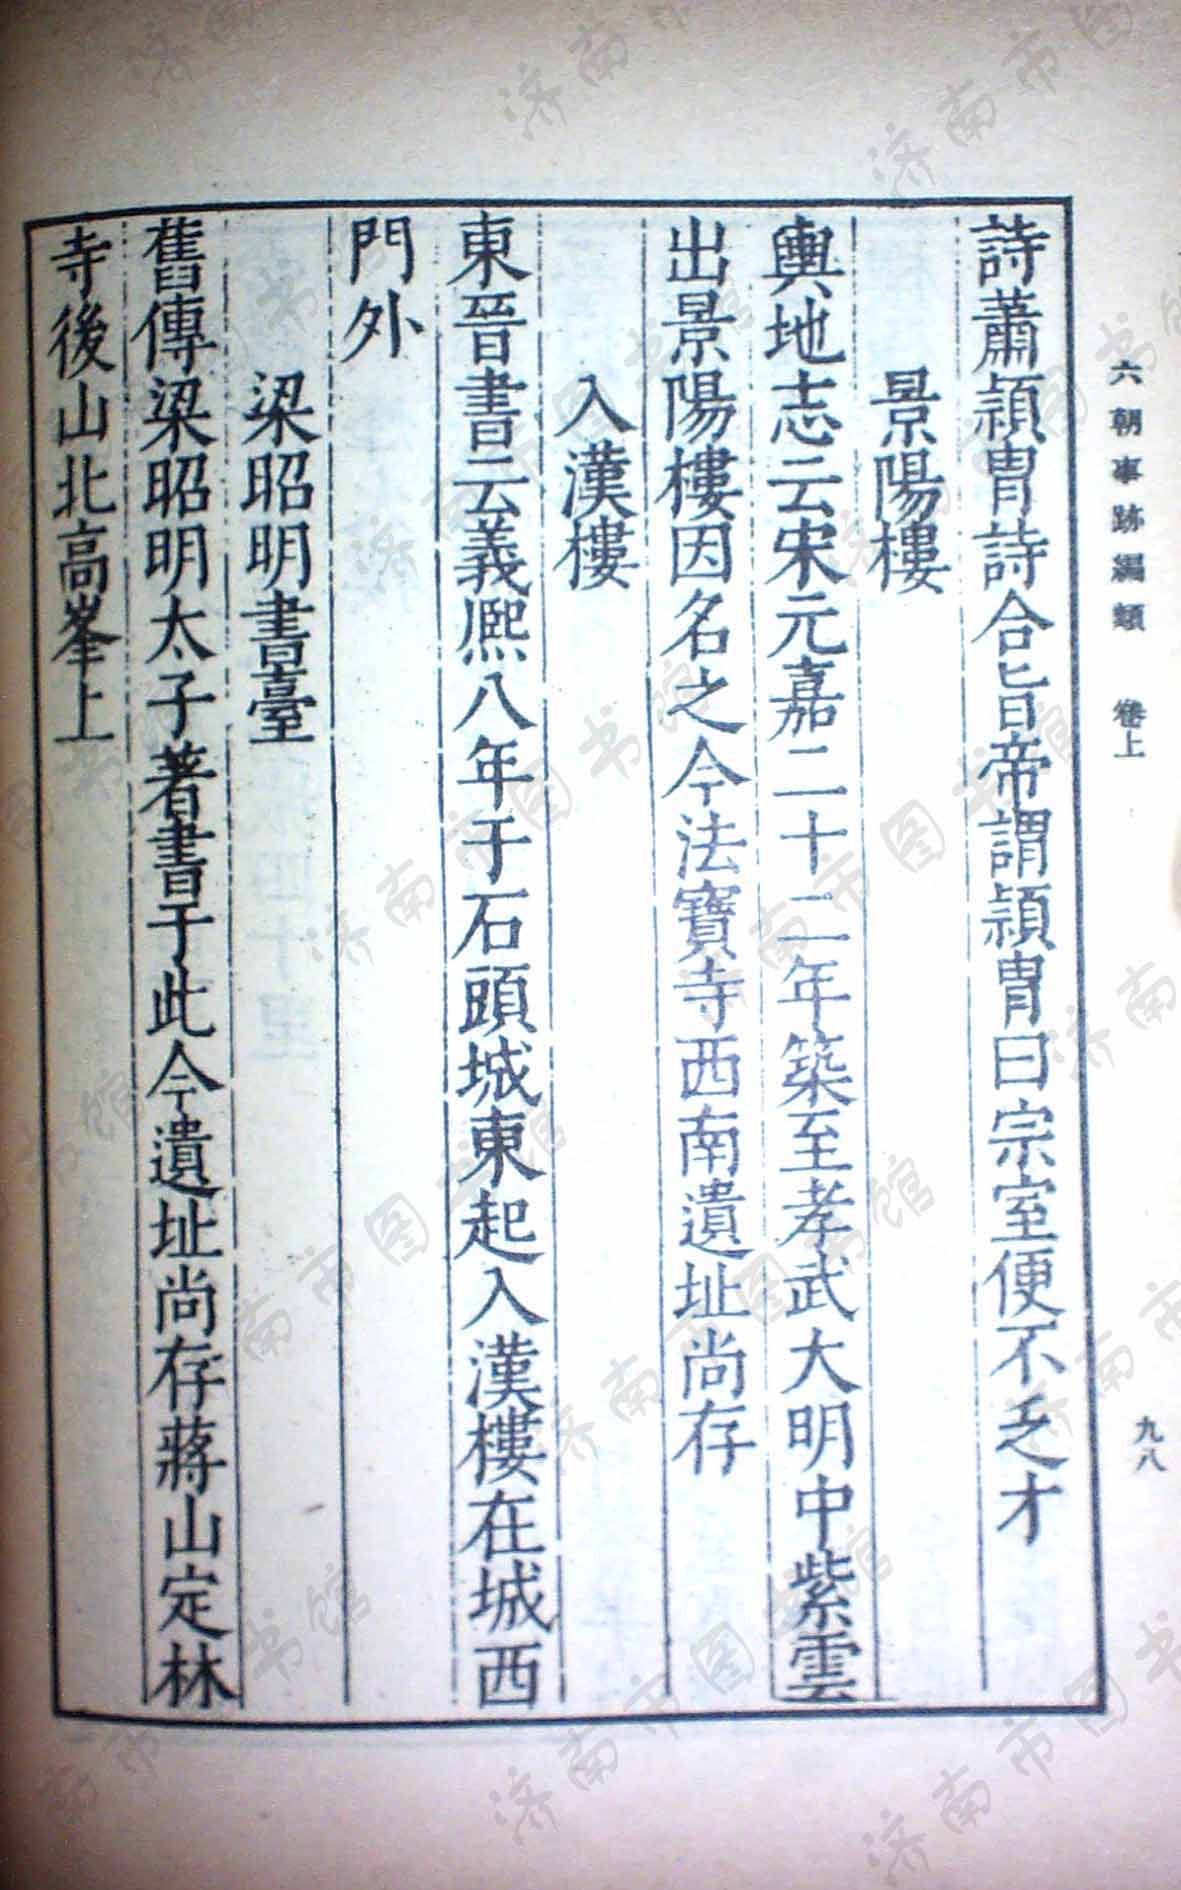 六朝事跡編類 卷上
九八
詩蕭頴胄詩合旨帝謂頴胄曰宗室便不乏才
景陽樓
輿地志云宋元嘉二十二年築至孝武大明中紫雲
出景陽樓因名之今法寶寺西南遺址尚存
入漢樓
東晉書云義熙八年于石頭城東起入漢樓在城西
門外
梁昭明書臺
舊傳梁昭明太子著書于此今遺址尚存蔣山定林
寺後山北高峯上
济南市图书馆